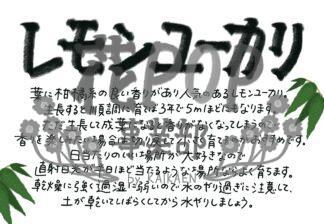 レモンユーカリ
葉に柑橘系の良い香りがあり人気のあるレモンユーカリ。
生長すると順調に育てば3年で5mほどにもなります。
ただ生長して成葉になると香りがなくなってしまうので
香りを楽しみたい場合は切り戻して小さく育てるのがおすすめです。
日当たりのいい場所が大好きなので
直射日光が半日ほど当たるような場所ならよく育ちます。
乾燥に強く過湿に弱いので水のやり過ぎに注意して、
土が乾いてしばらくしてから水やりしましょう。
POP
by KAINZEN